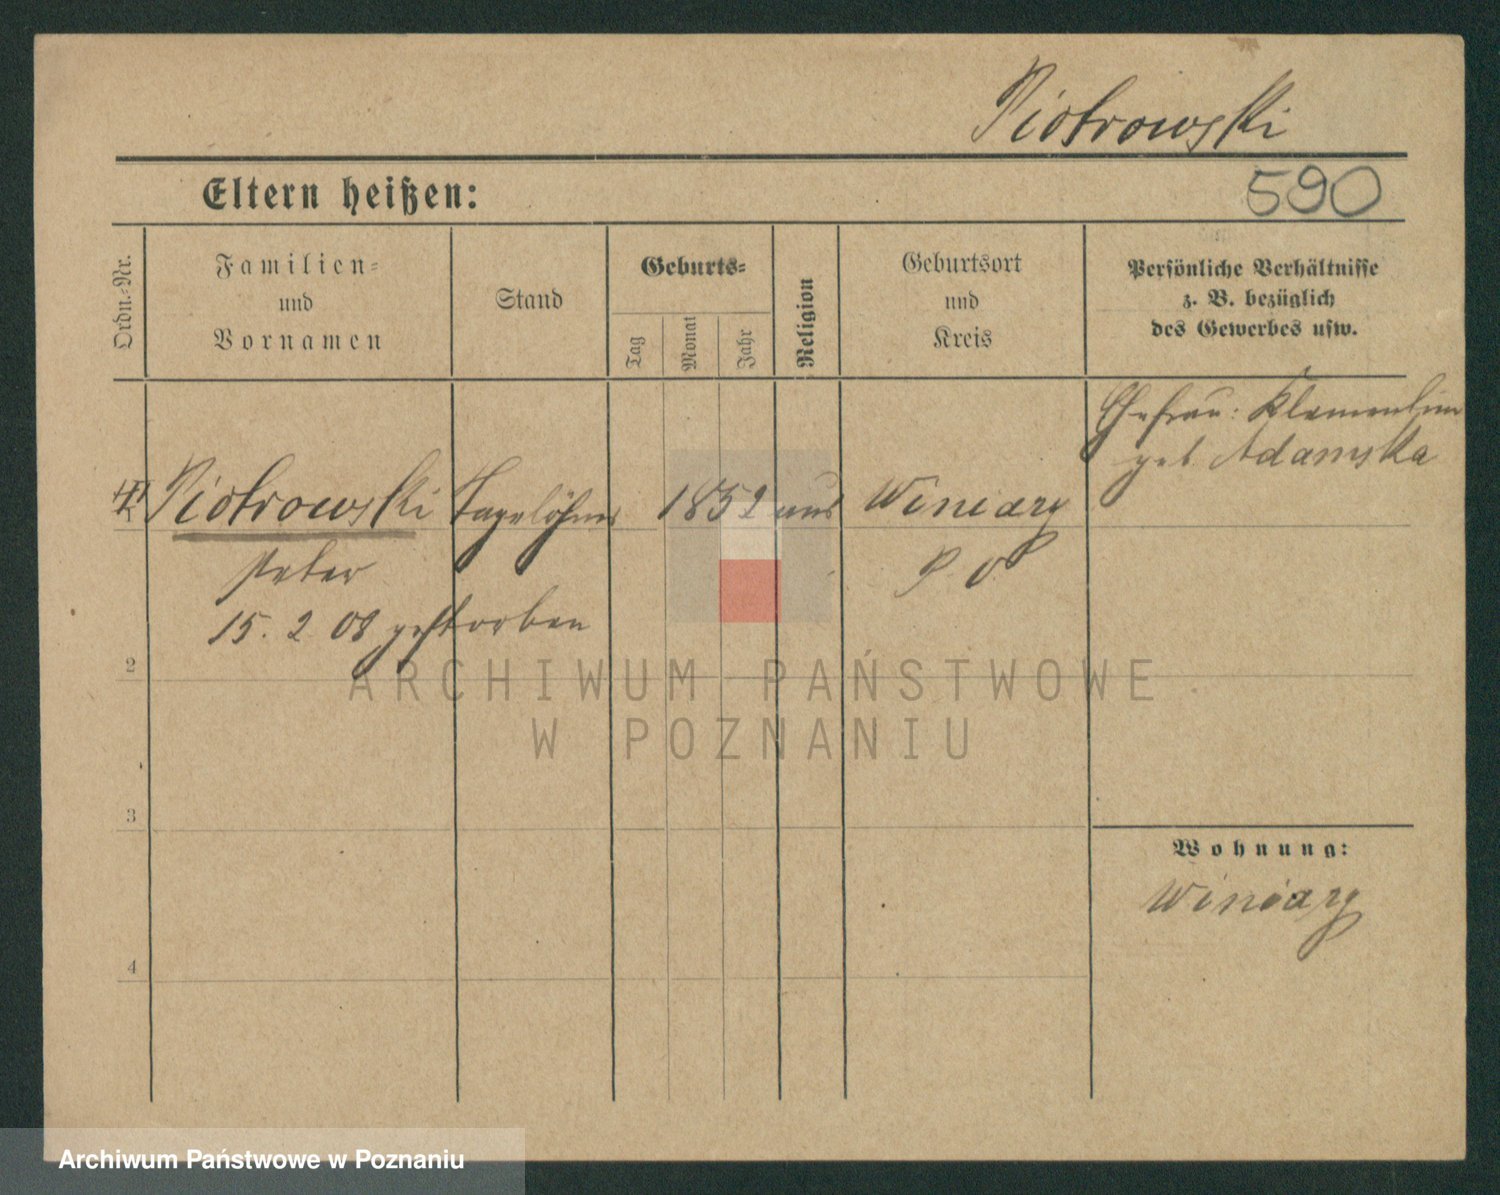 Piotrowski
Eltern heißen:
590
Ordn.-Nr.
Familien-
und
Vornamen
Stand
Geburts-
Tag
Monat
Jahr
Religion
Geburtsort
und
Kreis
Persönliche Verhältnisse
z. B. bezüglich
des Gewerbes usw.
Ehefrau: Klementine
geb Adamska
Piotrowski Tagelöhner 1852 aus Winiary
Peter P. O
15. 2 08 gestorben
2
3
4
Wohnung:
Winiary
ARCHIWUM PAŃSTWOWE
W POZNANIU
Archiwum Państwowe w Poznaniu